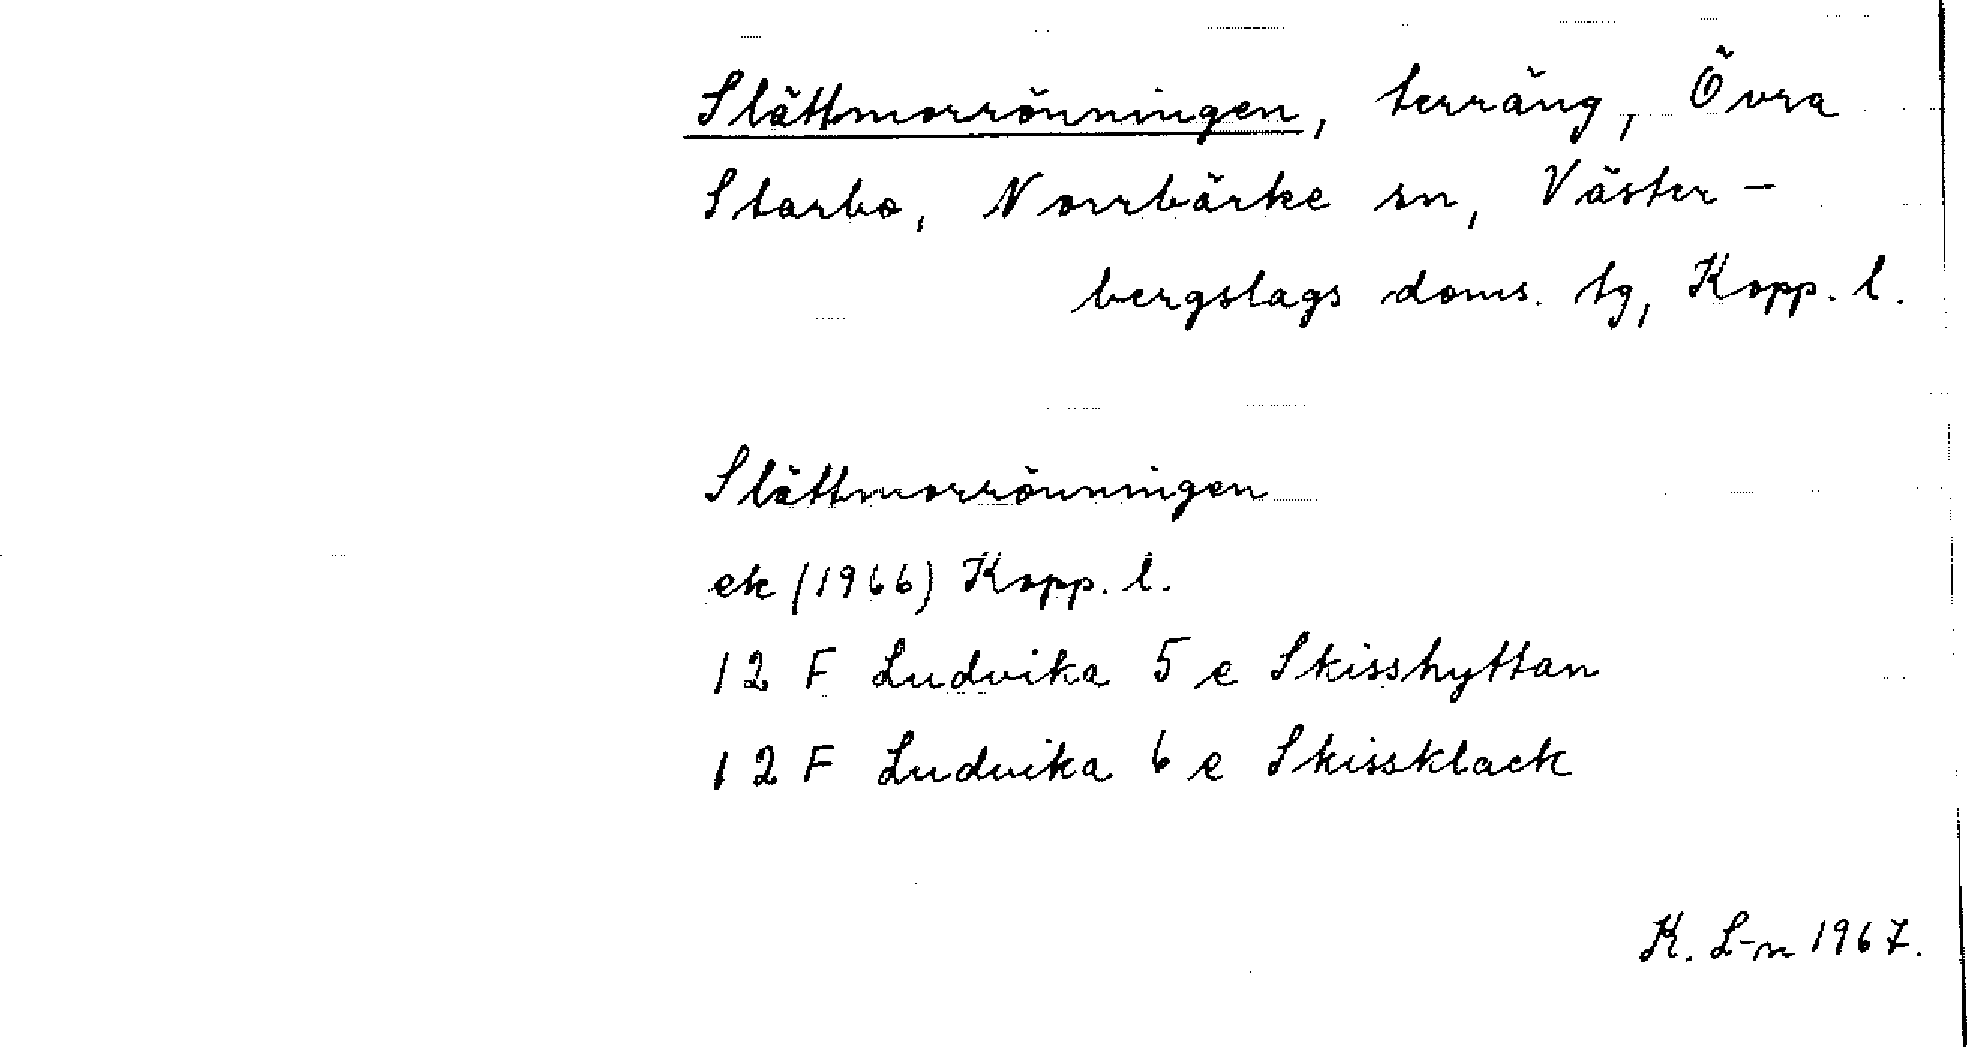 Slättmorrönningen, terräng, Övra
Starbo, Norrbärke sn, Väster-
bergslags doms. tg, Kopp. l.
Slättmorrönningen
ek (1966) Kopp. l.
12 F Ludvika 5 e Skisshyttan
12 F Ludvika 6 e Skissklack
K. L-n 1967.